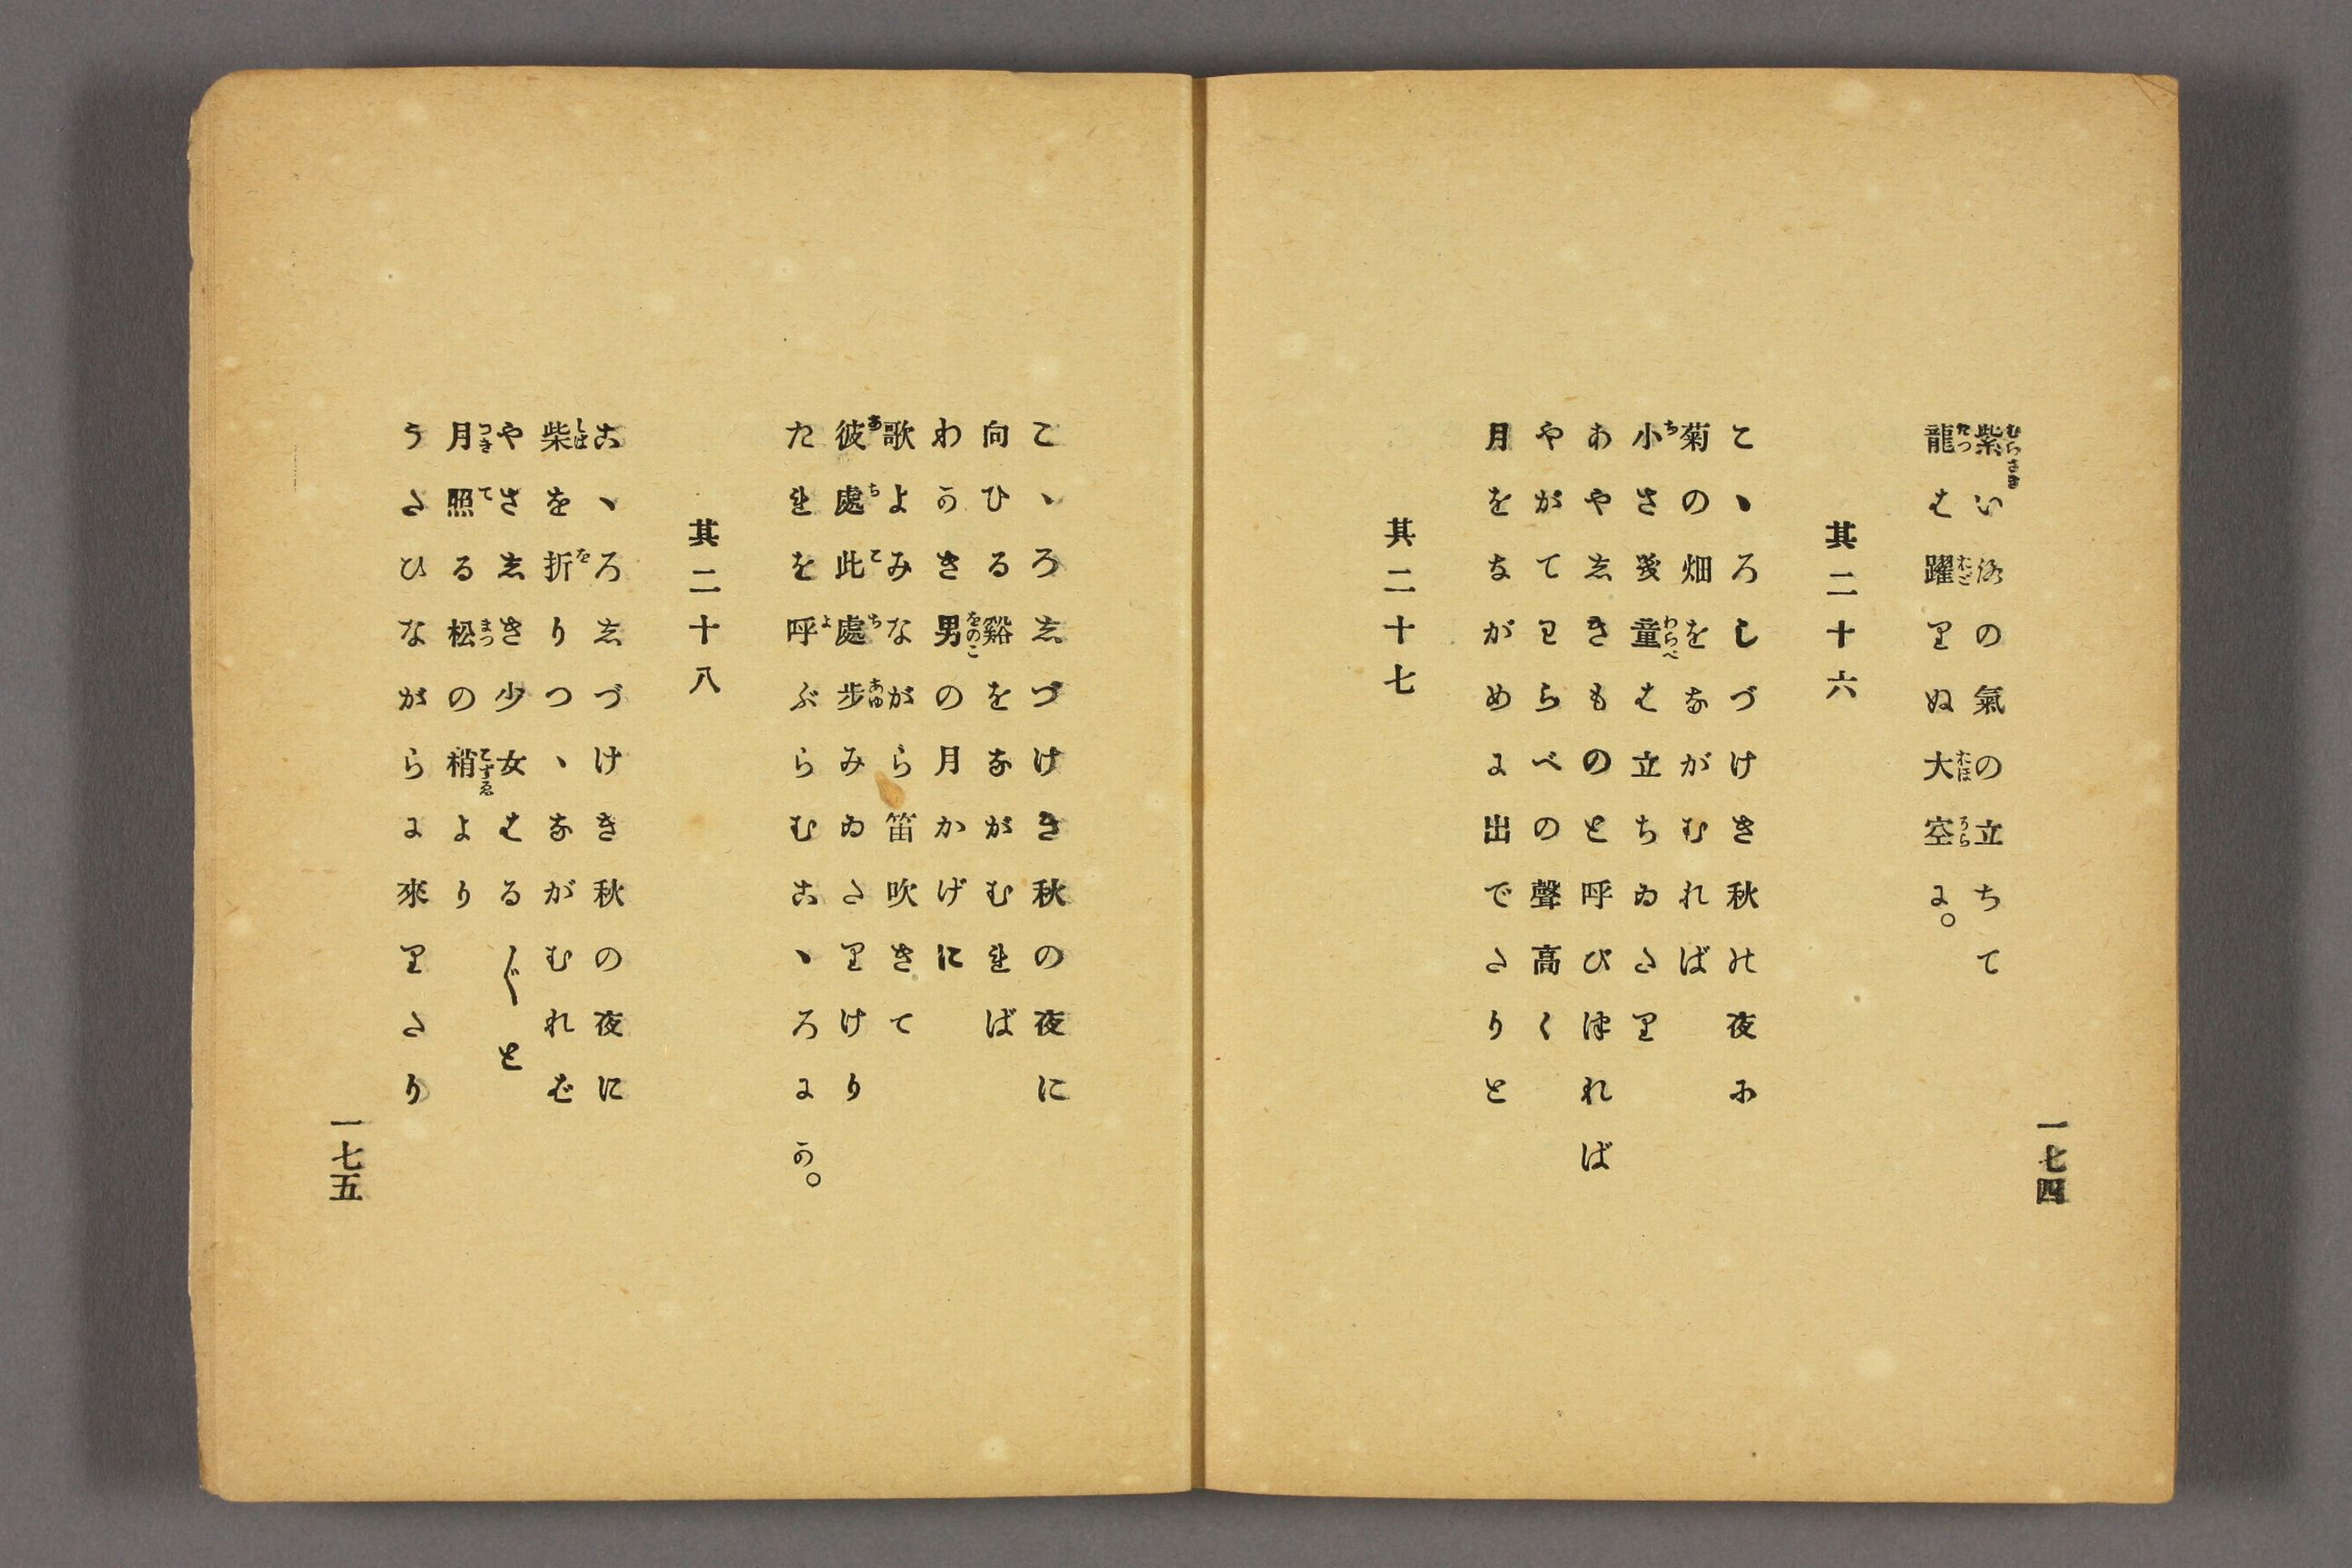 紫いろの氣の立ちて
龍は躍りぬ大空に。
其二十六
こゝろしづけき秋の夜に
菊の畑をながむれば
小さき童は立ちゐたり
あやしきものと呼びぼれば
やがてわらべの聲高く
月をながめに出でたりと
一七四
其二十七
こゝろしづけき秋の夜に
向ひる谿をながむれば
わかき男の月かげに
歌よみながら笛吹きて
彼處此處歩みゐたりけり
たれを呼ぶらむこゝろにか。
其二十八
こゝろしづけき秋の夜に
柴を折りつゝながむれば
やさしき少女はる〲と
月照る松の梢より
うたひながらに來りたり
一七五